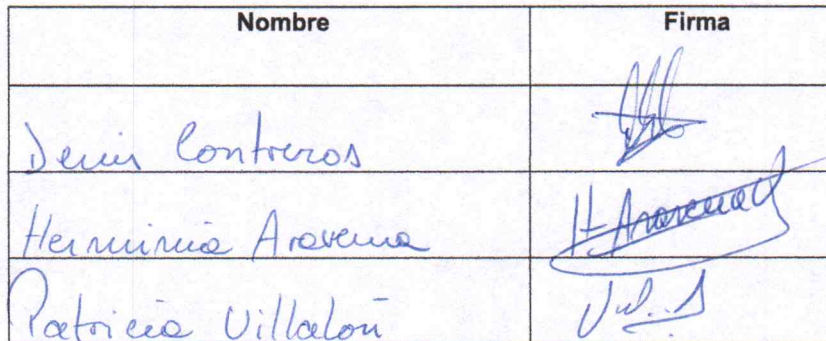 Nombre Firma
Denis Contreras
Herminia Aravena H Aravena
Patricia Villalón